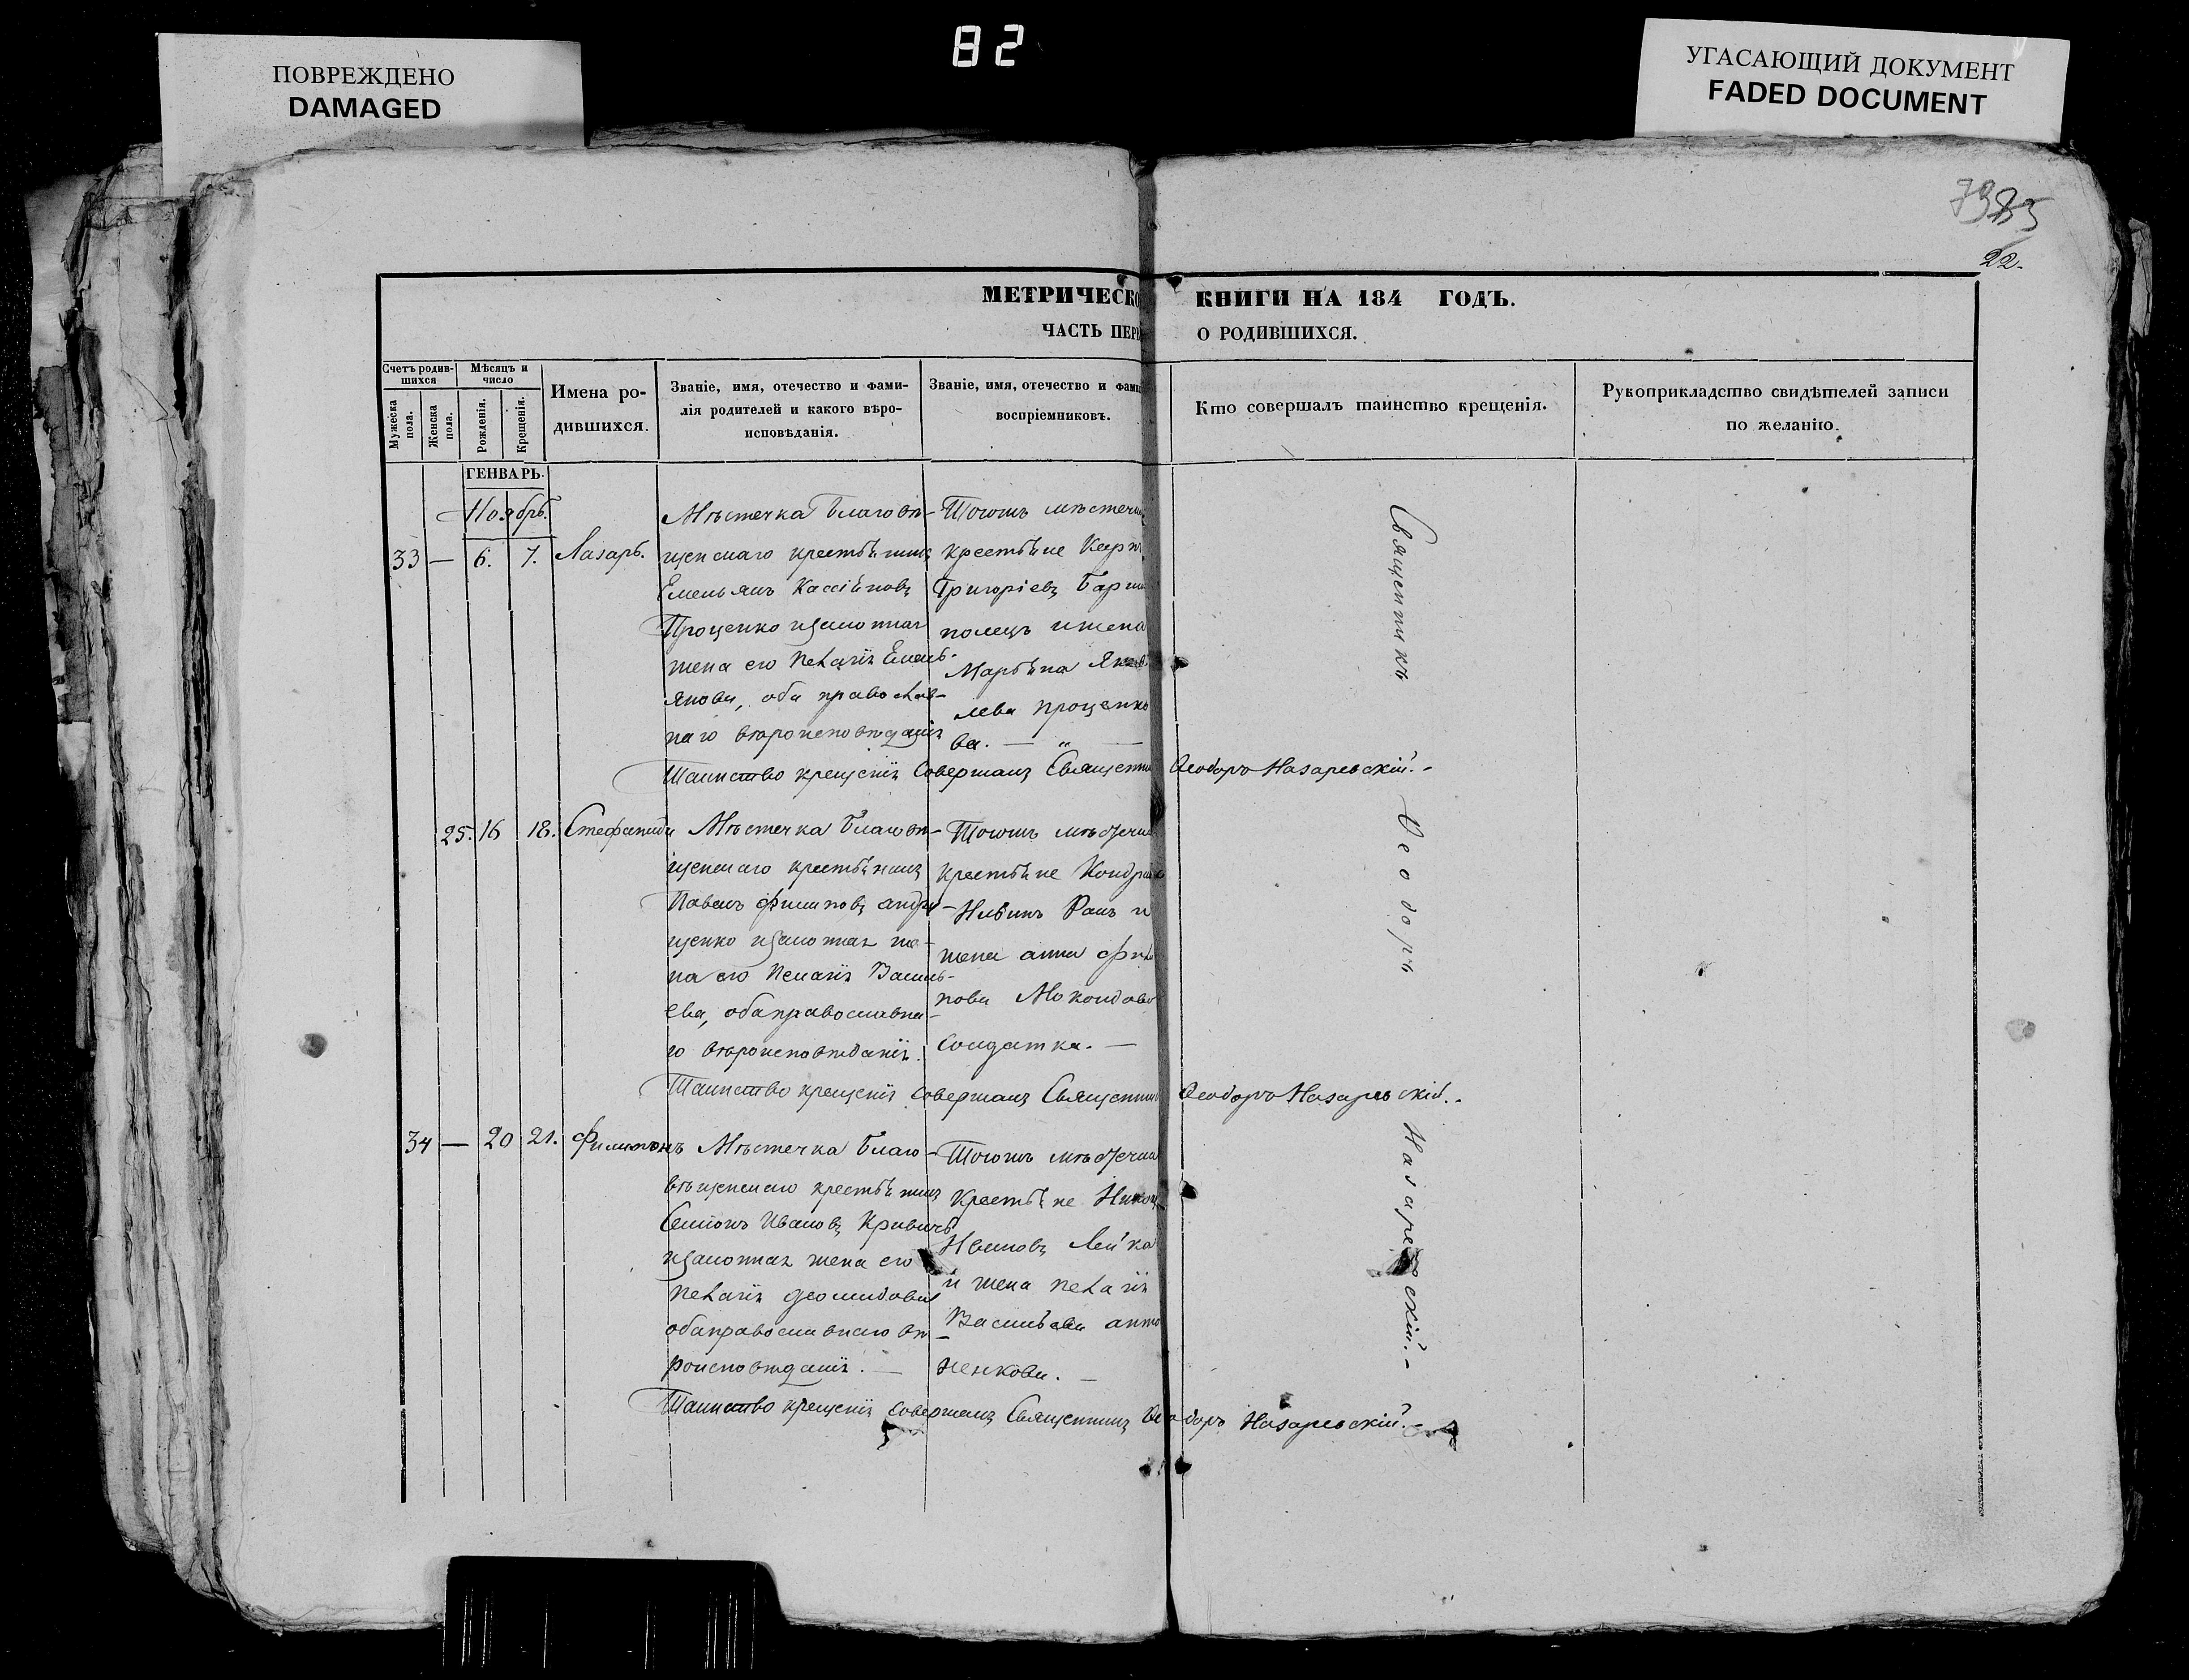 82
ПОВРЕЖДЕНО
DAMAGED
УГАСАЮЩИЙ ДОКУМЕНТ
FADED DOCUMENT
22.
МЕТРИЧЕСКО КНИГИ НА 184 ГОДЪ.
ЧАСТЬ ПЕРВ О РОДИВШИХСЯ.
Счетъ родив-
шихся
Мужеска
пола.
Женска
пола.
Мѣсяцъ и
число
Рожденія.
Крещенія.
Имена ро-
дившихся.
Званіе, имя, отечество и фами-
лія родителей и какого вѣро-
исповѣданія.
Званіе, имя, отечество и фами
воспріемниковъ.
Кто совершалъ таинство крещенія.
Рукоприкладство свидѣтелей записи
по желанію.
ГЕНВАРЬ.
Ноябрь.
33 — 6. 7. Лазарь.
Мѣстечка Благовѣ-
щенскаго крестьянинъ
Емельянъ Кассіяновъ
Проценко изаконная
жена его Пелагія Емель-
янова, оба православ-
наго вѣроисповѣданія
Тогожъ мѣстечка
крестьяне
Григоріевъ
полецъ ижена
Марьяна Яков
лева Проценко
ва. — „ —
Таинство крещенія Совершалъ Священни Ѳеодоръ Назаревскій. -
25. 16 18. Стефанида
Мѣстечка Благовѣ-
щенскаго крестьянинъ
Павелъ Филиповъ Андрю-
щенко изаконная же-
на его Пелагія Василь-
ева, обаправославна-
го вѣроисповѣданія.
Тогожъ мѣстечка
Крестьяне Кондрат
жена Анна Фили
пова
Солдатка. —
Таинство крещенія Совершалъ Священни Ѳеодоръ Назаревскій. -
34 — 20 21. Филимонъ
Мѣстечка Благо-
вѣщенскаго крестьянинъ
Семіонъ Ивановъ
изаконная жена его
Пелагія Діомидова
обаправославнаго вѣ-
роисповѣданія. —
Тогожъ мѣстечка
Крестьяне
Ивановъ Лейка
и жена Пелагія
Васильева Анто
ненкова. —
Таинство крещенія Совершалъ Священникъ Ѳеодоръ Назаревскій. -
Священникъ
Ѳеодоръ
Назаревскій. -